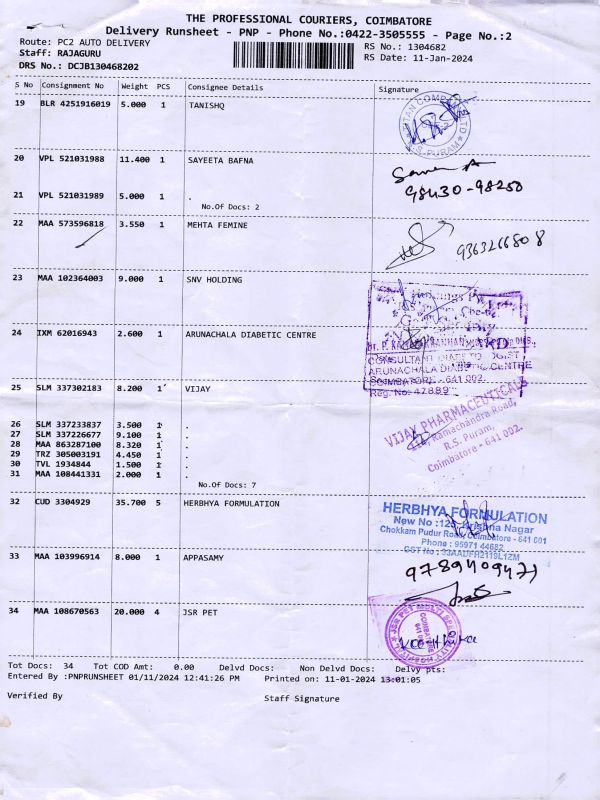 THE PROFESSIONAL COURIERS, COIMBATORE
Delivery Runsheet - PNP - Phone No.:0422-3505555 - Page No.:2
Route: PC2 AUTO DELIVERY
RS No.: 1304682
Staff: RAJAGURU
RS Date: 11-Jan-2024
DRS No.: DCJB130468202
S No Consignment No Weight PCS Consignee Details Signature
19 BLR 4251916019 5.000 1 TANISHQ
R.S. PURAM
20 VPL 521031988 11.400 1 SAYEETA BAFNA
98430-98250
21 VPL 521031989 5.000 1 .
No.Of Docs: 2
22 MAA 573596818 3.550 1 MEHTA FEMINE
9363266808
23 MAA 102364003 9.000 1 SNV HOLDING
24 IXM 62016943 2.600 1 ARUNACHALA DIABETIC CENTRE
CONSULTANT DIABETOLOGIST
ARUNACHALA DIABETIC CENTRE
COIMBATORE - 641 002.
Reg. No: 47889
25 SLM 337302183 8.200 1 VIJAY
VIJAY PHARMACEUTICALS
Ramachandra Road,
R.S. Puram,
Coimbatore - 641 002.
26 SLM 337233837 3.500 1 .
27 SLM 337226677 9.100 1 .
28 MAA 863287100 8.320 1 .
29 TRZ 305003191 4.450 1 .
30 TVL 1934844 1.500 1 .
31 MAA 108441331 2.000 1 .
No.Of Docs: 7
32 CUD 3304929 35.700 5 HERBHYA FORMULATION
HERBHYA FORMULATION
New No :129, Krishna Nagar
Chokkam Pudur Road, Coimbatore - 641 001
Phone : 95971 44682
GST No : 33AADFH2118L1ZM
33 MAA 103996914 8.000 1 APPASAMY
9789409471
34 MAA 108670563 20.000 4 JSR PET
JSR PET MULTI SPECIALITY HOSPITAL
COIMBATORE
Tot Docs: 34 Tot COD Amt: 0.00 Delvd Docs: Non Delvd Docs: Delvy pts:
Entered By :PNPRUNSHEET 01/11/2024 12:41:26 PM Printed on: 11-01-2024 13:01:05
Verified By Staff Signature